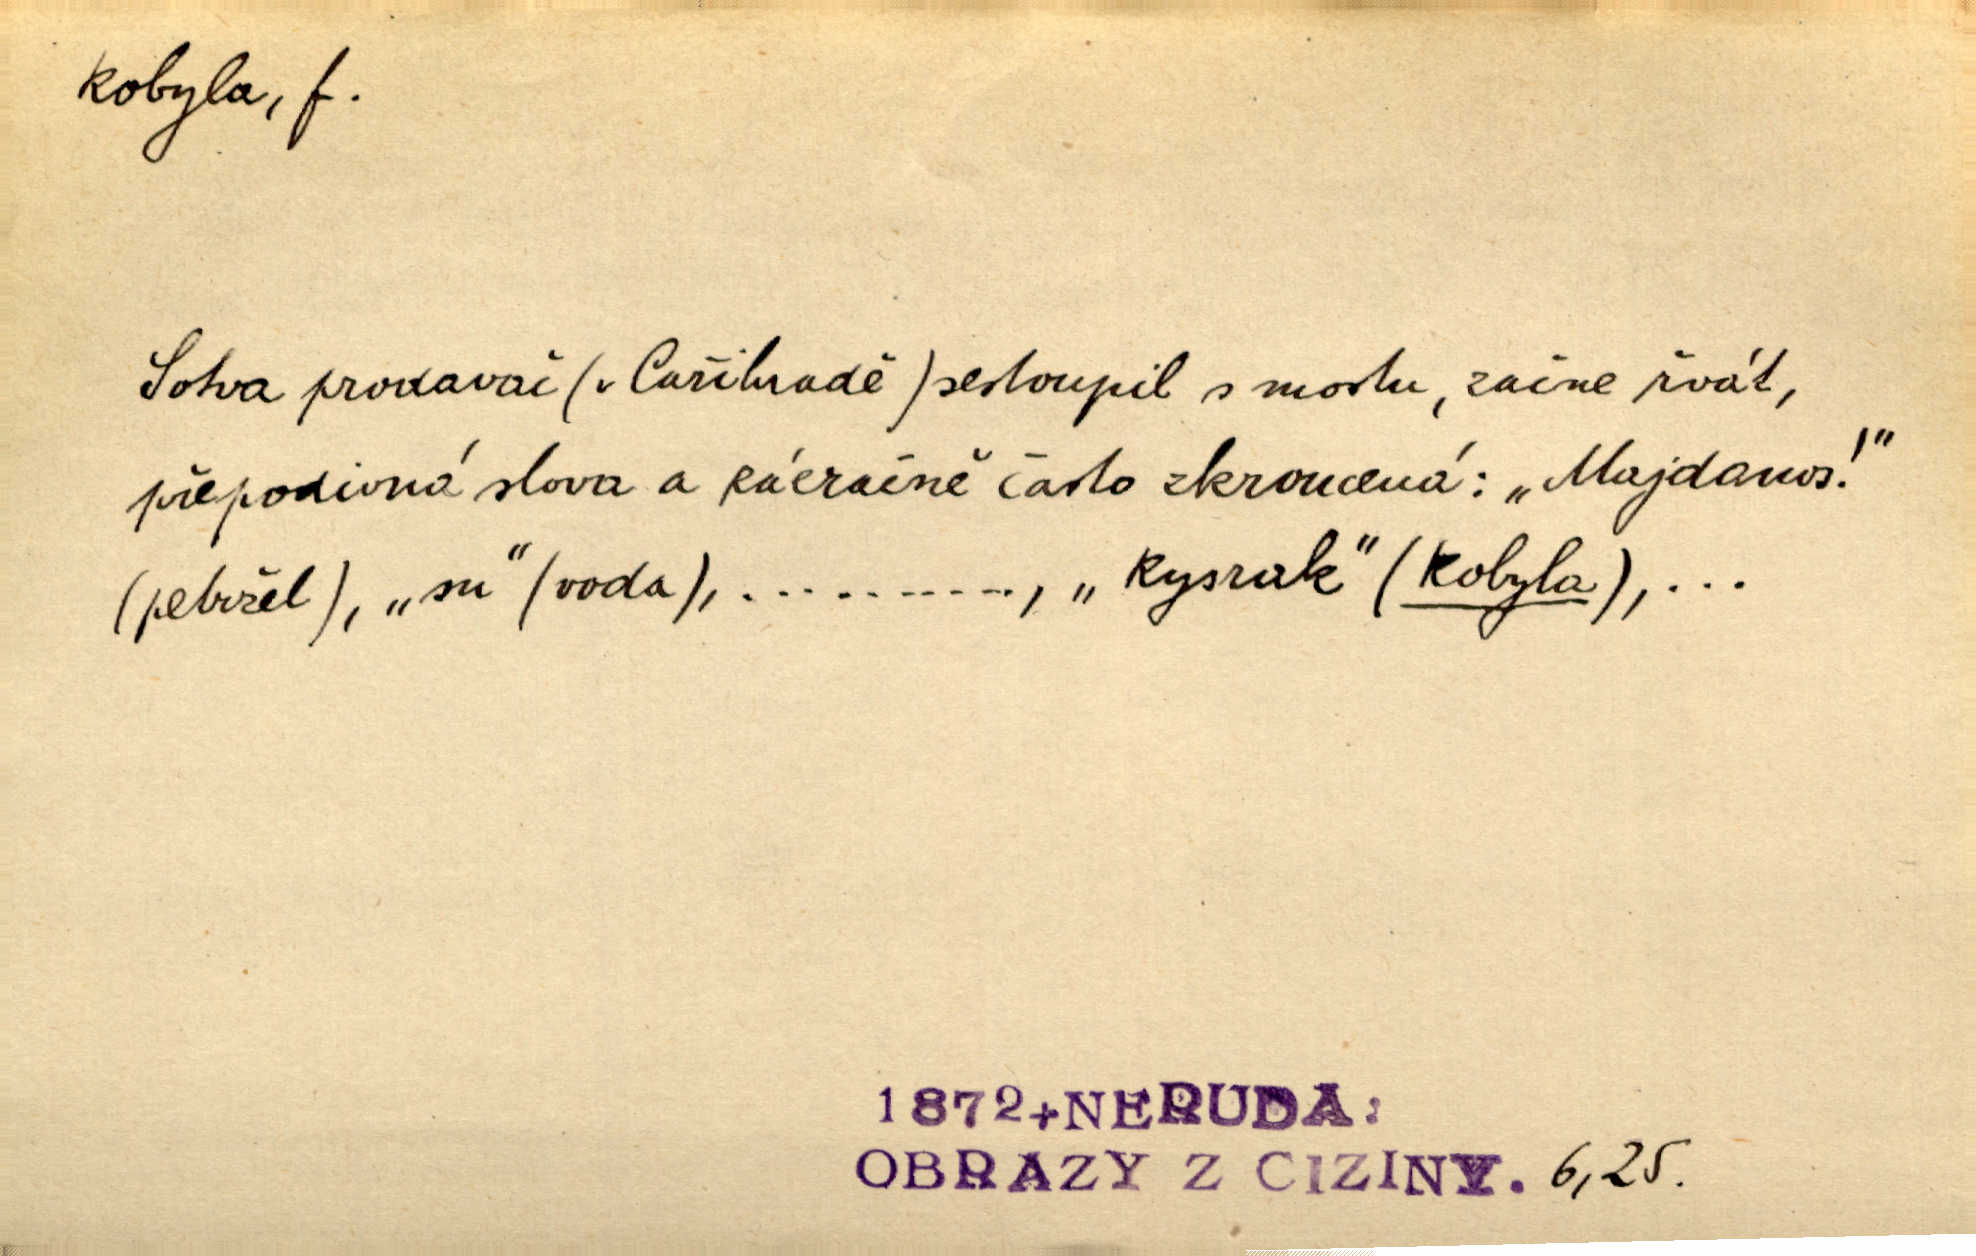 kobyla, f.
Sotva prodavač (v Cařihradě) sestoupil s mostu, začne řvát,
přepodivná slova a zázračně často zkroucená: „Majdanos!"
(petržel), „su" (voda), ..........., „kysrak" (kobyla), ...
1872+NERUDA:
OBRAZY Z CIZINY. 6,25.